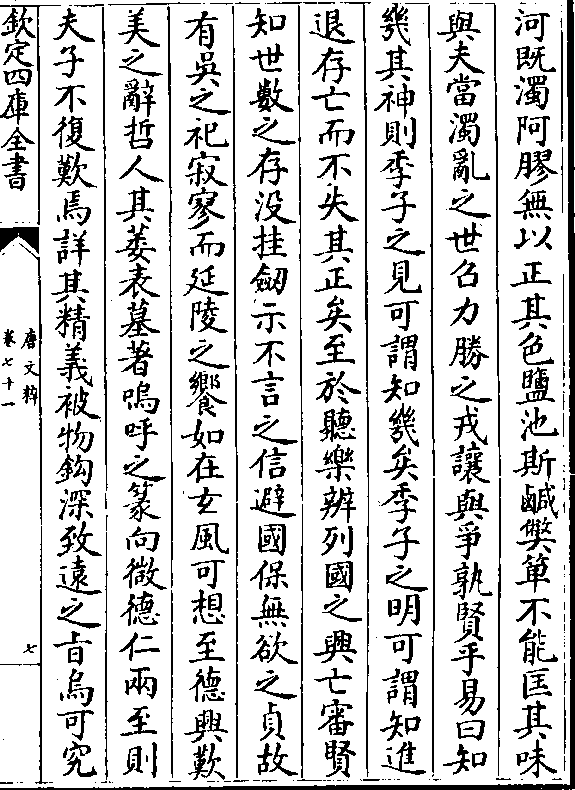 河既濁阿膠無以正其色鹽池斯鹹獘箄不能匡其味
與夫當濁亂之世召力勝之戎讓與爭孰賢乎易曰知
㡬其神則季子之見可謂知㡬矣季子之明可謂知進
退存亡而不失其正矣至於聽樂辨列國之興亡審賢
知世數之存没挂劒示不言之信避國保無欲之貞故
有吳之祀寂寥而延陵之饗如在玄風可想至德興歎
美之辭哲人其萎表墓著嗚呼之篆向微德仁兩至則
夫子不復歎焉詳其精義被物鈎深致遠之旨烏可究
欽定四庫全書
唐文粹
卷七十一
七